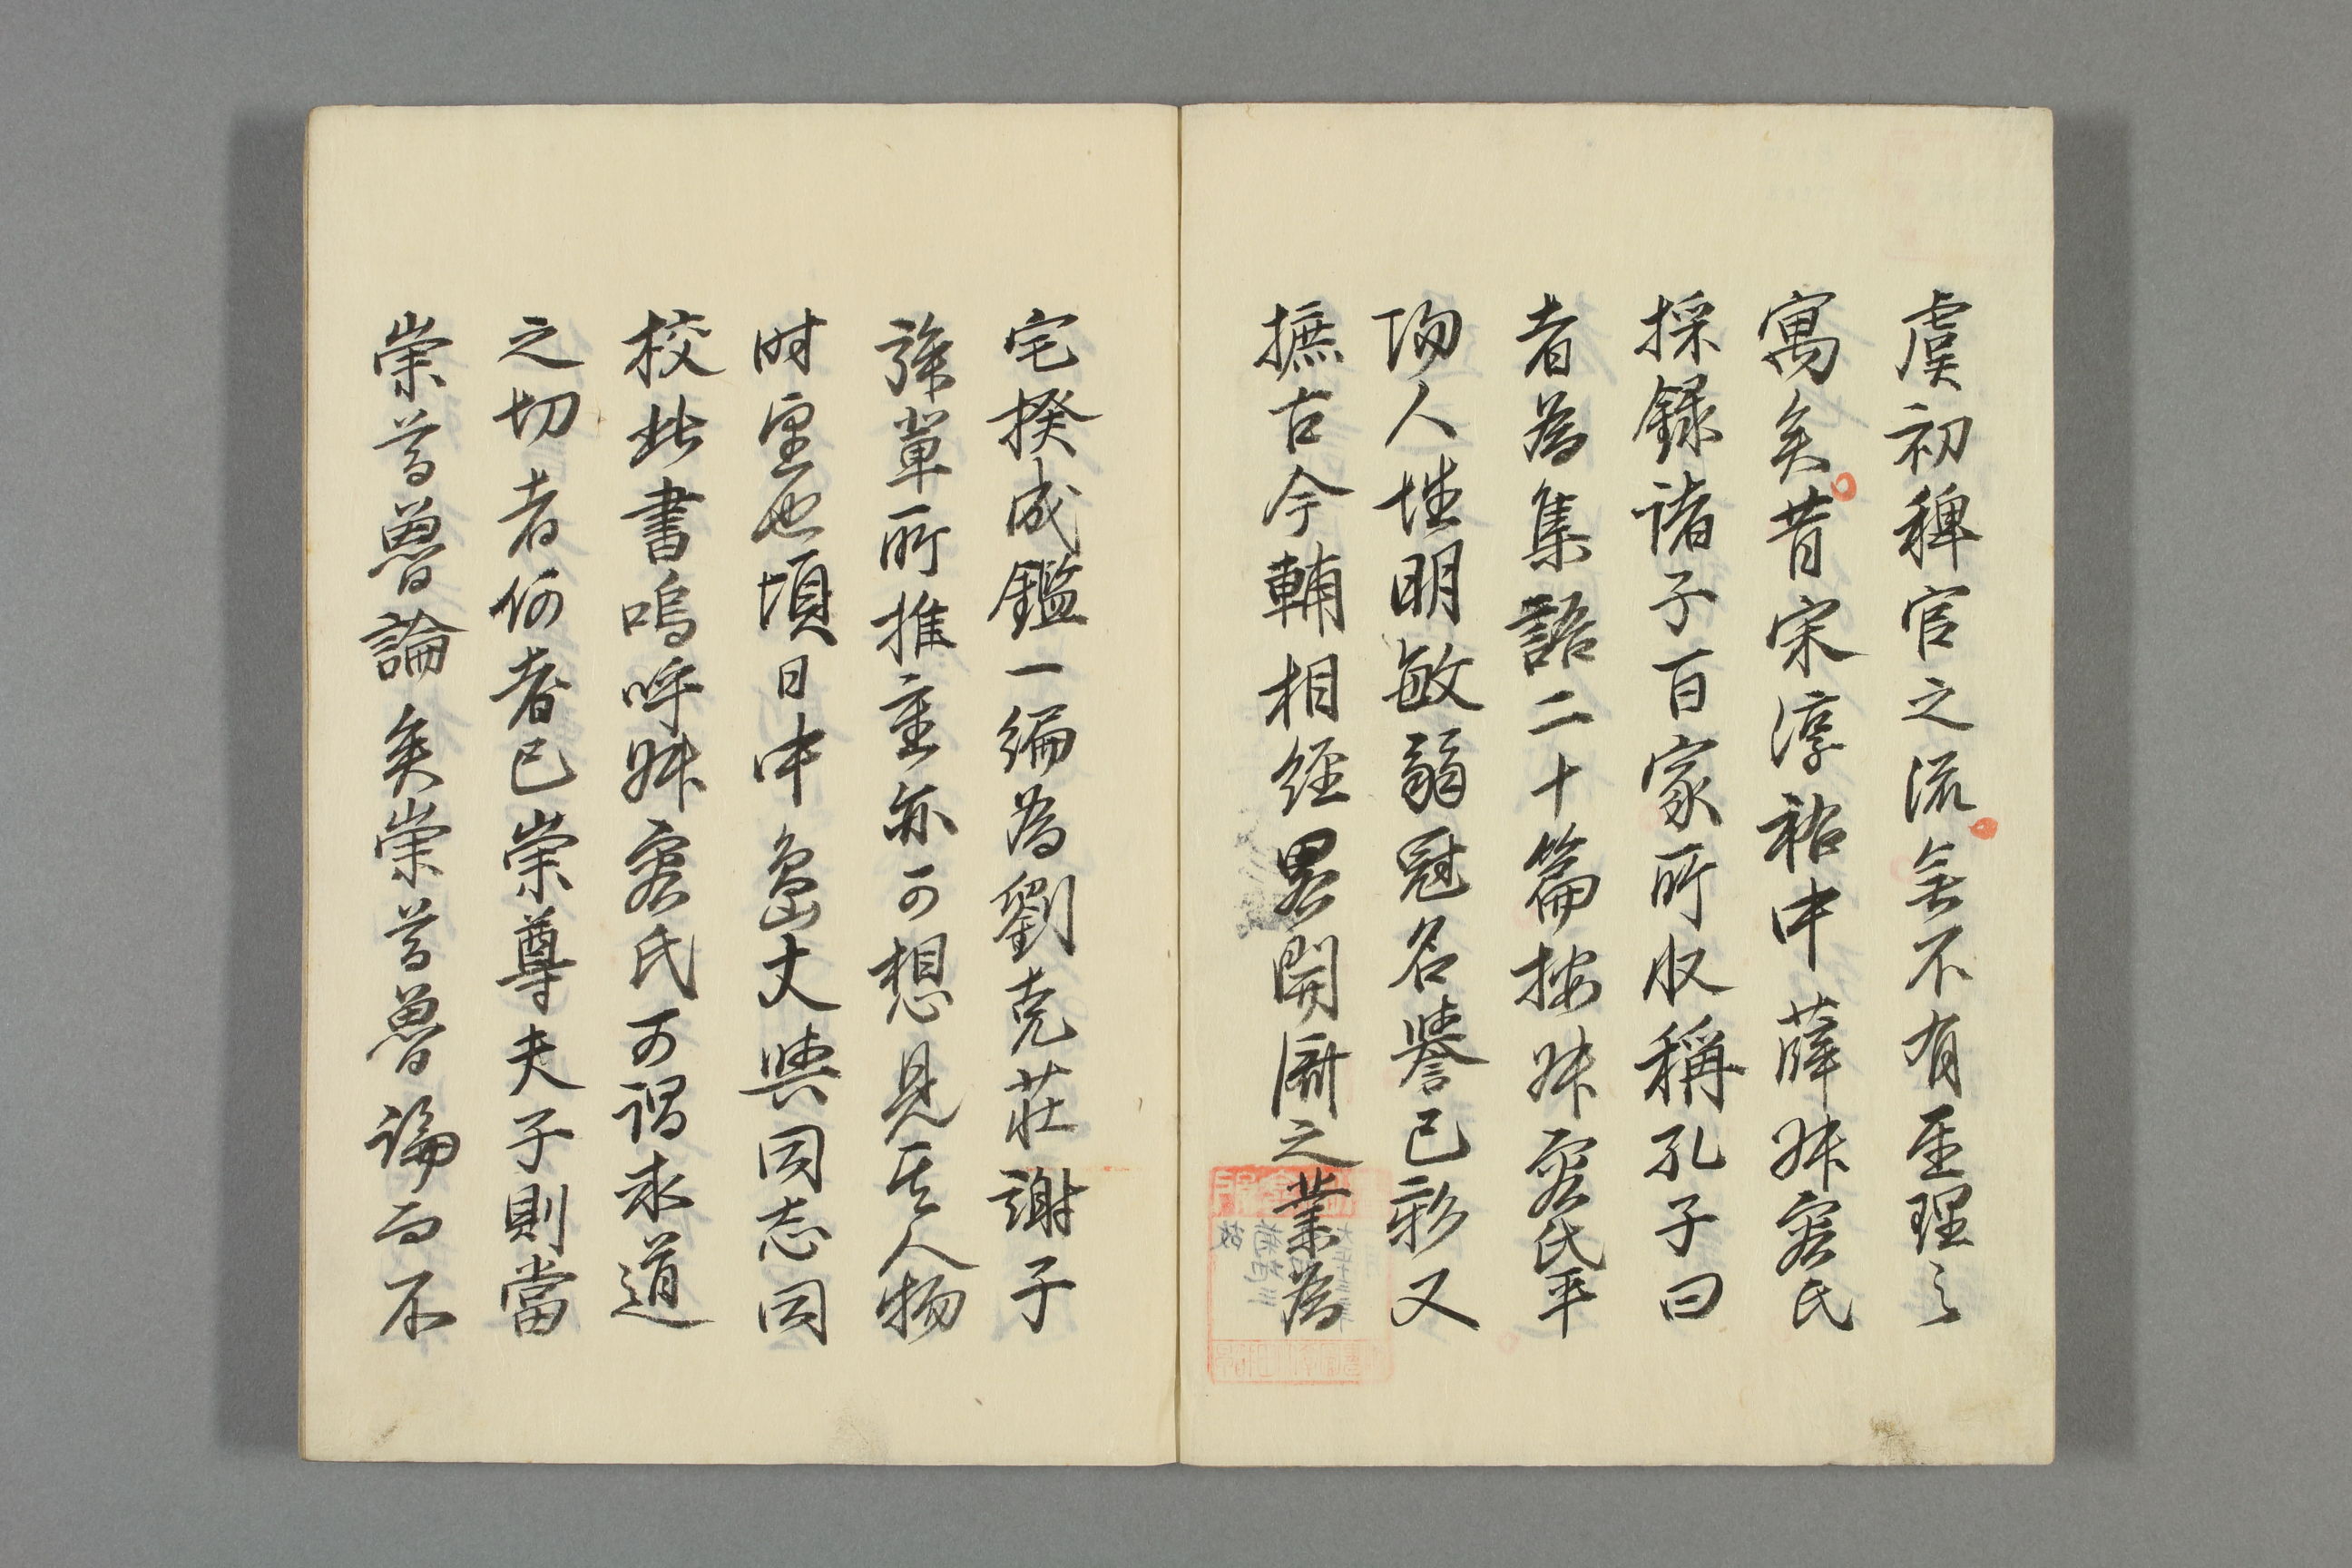 虞初稗官之流無不有至理之
寓矣昔宋淳祐中薛叔容氏
採録諸子百家所収稱孔子曰
者為集語二十篇按叔容氏平
陽人性明敏弱冠名譽已彰又
摭古今輔相経畧開濟之業為
宅揆成鑑一編為劉克莊謝子
強輩所推重亦可想見其人物
时望也頃日中島丈與同志同
校此書嗚呼叔容氏可謂求道
之切者何者已崇尊夫子則當
崇尊魯論矣崇尊魯論而不